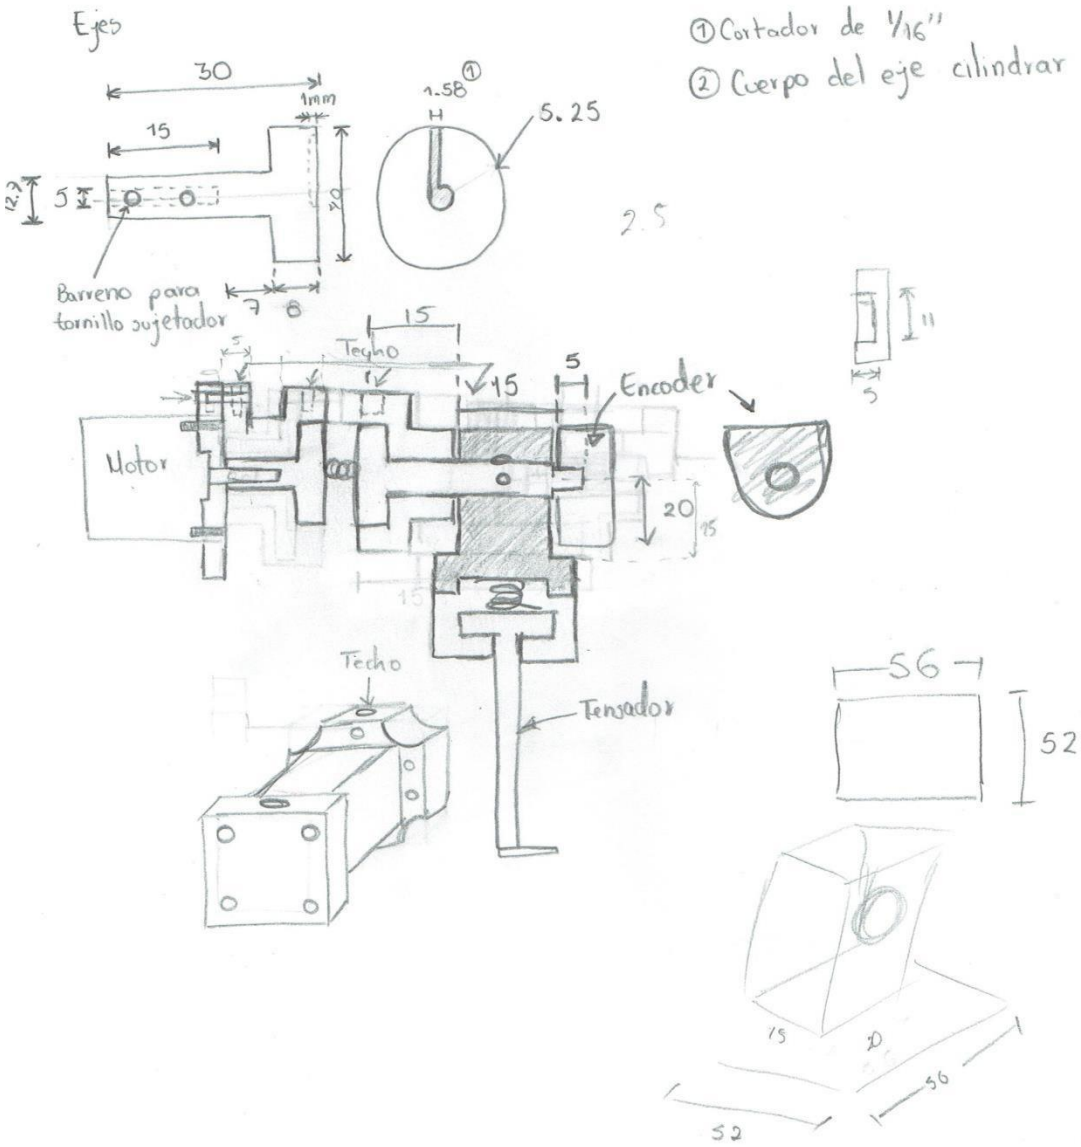 Ejes
① Cortador de 1/16"
② Cuerpo del eje cilindrar
30
1mm
15
5
7
8
Barreno para
tornillo sujetador
1.58 ①
5.25
2.5
11
5
15
5
Techo
15
5
Encoder
Motor
20
15
15
Techo
Tensador
56
52
15
56
52